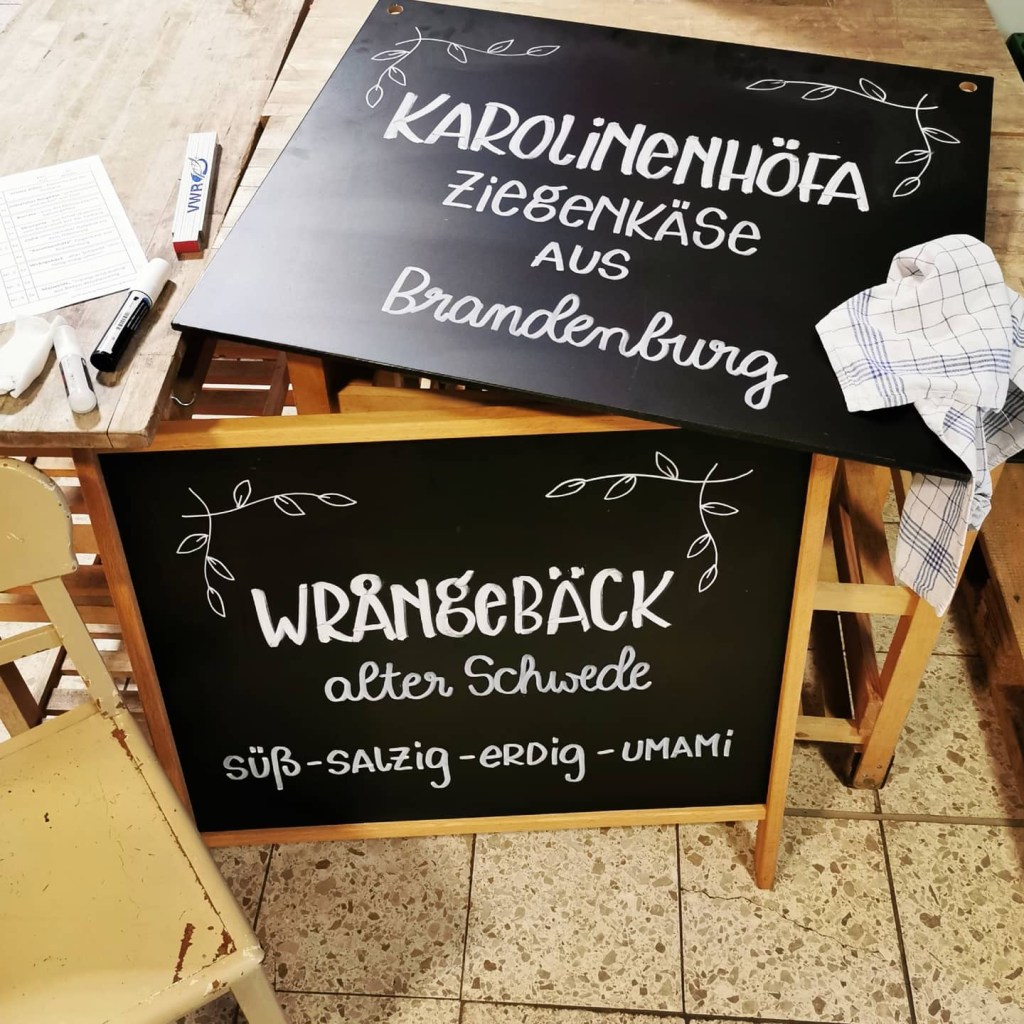 KAROLiNENHÖFA
ZiEGENKÄSE
AUS
Brandenburg
WRÅNGEBÄCK
alter Schwede
SÜß-SALZig-ERDig-UMAMi
VWR